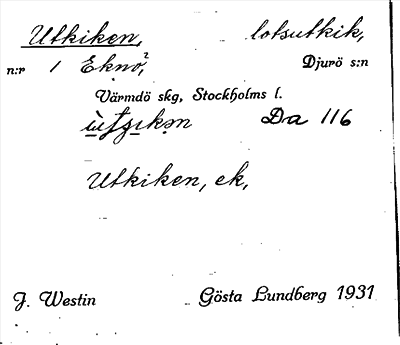 Utkiken, lotsutkik,
n:r 1 Eknö,² Djurö s:n
Värmdö skg, Stockholms l.
Da 116
Utkiken, ek,
J. Westin Gösta Lundberg 1931